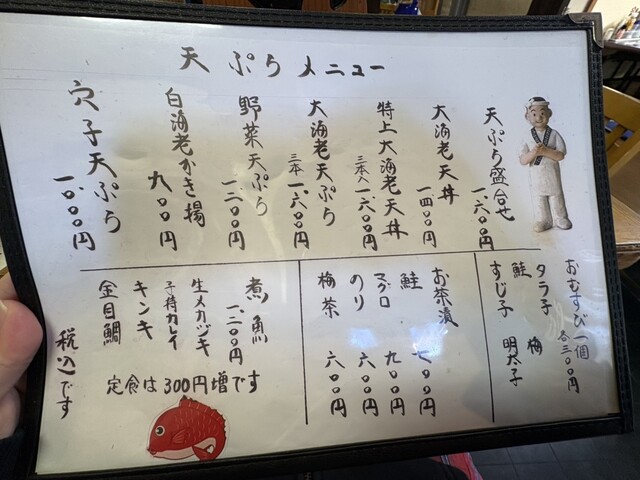 天ぷらメニュー
天ぷら盛合せ 一、六〇〇円
大海老天丼 一、四〇〇円
特上大海老天丼 三本入 一、六〇〇円
大海老天ぷら 三本 一、六〇〇円
野菜天ぷら 一、二〇〇円
白海老かき揚 九〇〇円
穴子天ぷら 一、〇〇〇円
おむすび一個 各三〇〇円
タラ子 梅
鮭 明太子
すじ子
お茶漬
鮭 七〇〇円
マグロ 九〇〇円
のり 六〇〇円
梅茶 六〇〇円
煮魚 一、二〇〇円
生メカヅキ
子持カレイ
キンキ
金目鯛
定食は300円増です
税込です